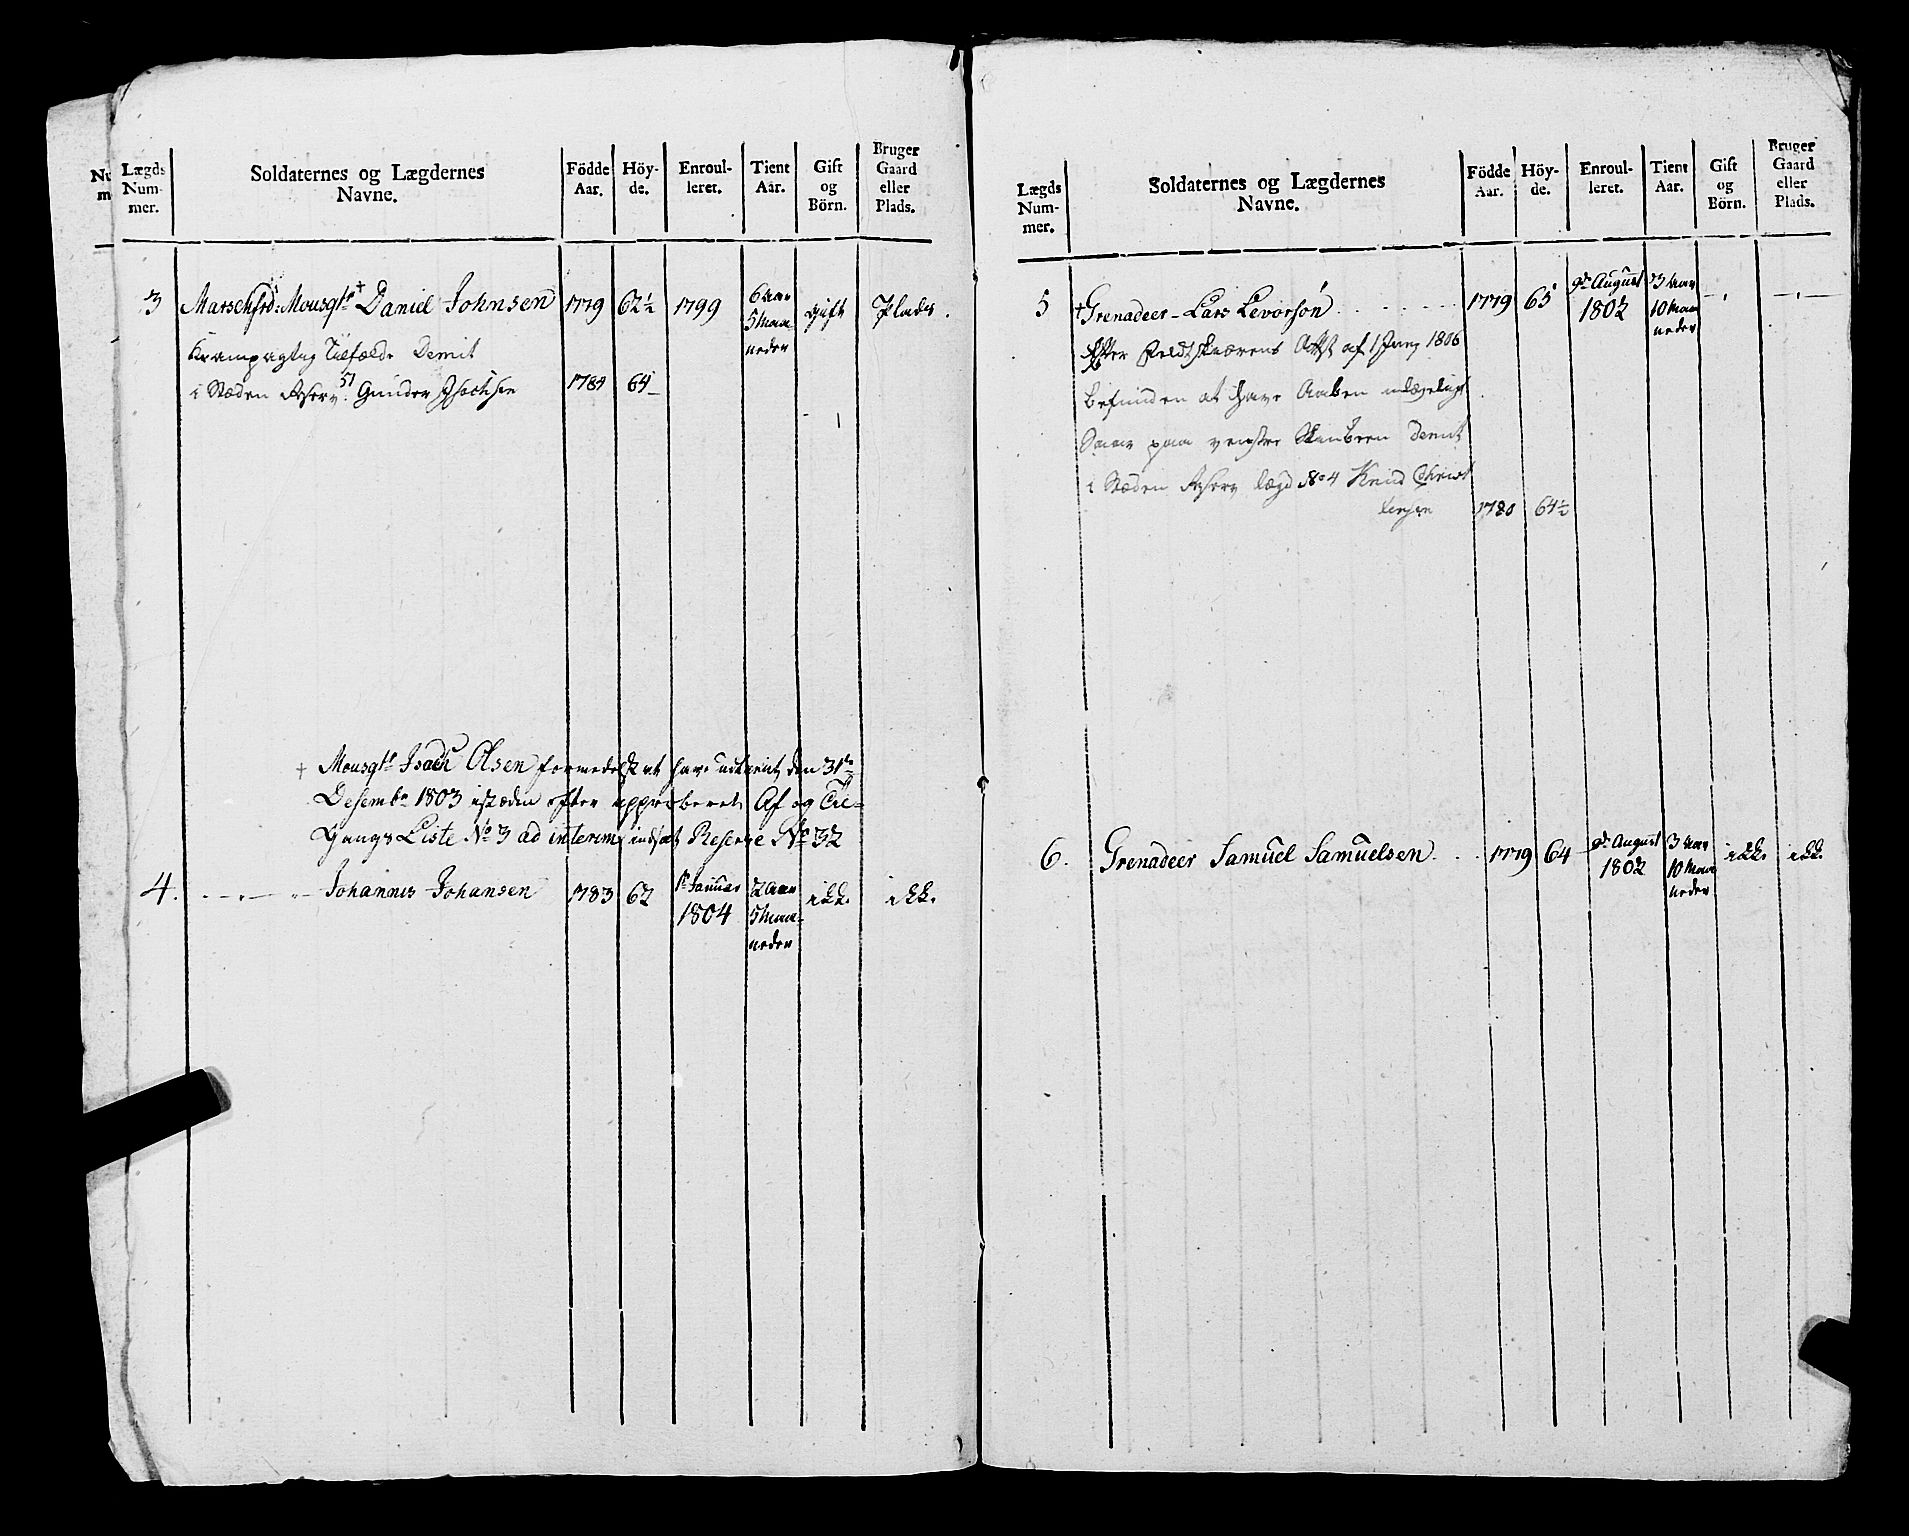 Lægds Num- mer.
Soldaternes og Lægdernes Navne.
Födde Aar.
Höy- de.
Enroul- leret.
Tient Aar.
Gift og Börn.
Bruger Gaard eller Plads.
3 Marschfrd: Mousqtr † Daniel Johnsen 1779 62½ 1799 6 Aar 5 Maa- neder gift Plads.
Krampagtig Tilfælde Demit
i Stæden Reserv 51 Gunder Isachsen 1784 64
† Mousqtr Isach Olsen formedelst at have udtient den 31te
Desembr 1803 istæden efter approberet Af og Til-
Gangs Liste No 3 ad interim indsat Reserve No 32
4. Johannis Johansen 1783 62 1te Januar 1804 2 Aar 5 Maa- neder ikke. ikke.
Lægds Num- mer.
Soldaternes og Lægdernes Navne.
Födde Aar.
Höy- de.
Enroul- leret.
Tient Aar.
Gift og Börn.
Bruger Gaard eller Plads.
5 † Grenadeer - Lars Levorsøn 1779 65 August 1802 3 Aar 10 Maa neder
Efter Feldtskærens Attst af 1 Jang 1806
befunden at have Aaben ulægeligt
Saar paa venstre Skinbeen Demit
i Stæden Reserv Lægd No 4 Knud Christ
lensen 1780 64½
6. Grenadeer Samuel Samuelsen 1779 64 August 1802 3 Aar 10 Maa neder ikke. ikke.